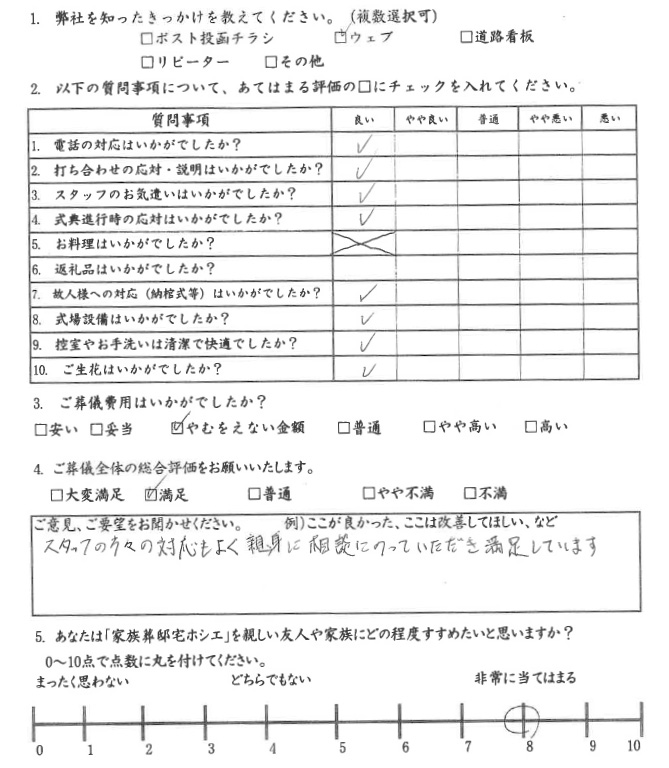 1. 弊社を知ったきっかけを教えてください。(複数選択可)
□ポスト投函チラシ ☑ウェブ □道路看板
□リピーター □その他
2. 以下の質問事項について、あてはまる評価の□にチェックを入れてください。
質問事項 良い やや良い 普通 やや悪い 悪い
1. 電話の対応はいかがでしたか? ✓
2. 打ち合わせの応対・説明はいかがでしたか? ✓
3. スタッフのお気遣いはいかがでしたか? ✓
4. 式典進行時の応対はいかがでしたか? ✓
5. お料理はいかがでしたか?
6. 返礼品はいかがでしたか?
7. 故人様への対応(納棺式等)はいかがでしたか? ✓
8. 式場設備はいかがでしたか? ✓
9. 控室やお手洗いは清潔で快適でしたか? ✓
10. ご生花はいかがでしたか? ✓
3. ご葬儀費用はいかがでしたか?
□安い □妥当 ☑やむをえない金額 □普通 □やや高い □高い
4. ご葬儀全体の総合評価をお願いいたします。
□大変満足 ☑満足 □普通 □やや不満 □不満
ご意見、ご要望をお聞かせください。 例)ここが良かった、ここは改善してほしい、など
スタッフの方々の対応もよく親身に相談にのっていただき満足しています
5. あなたは「家族葬邸宅ホシエ」を親しい友人や家族にどの程度すすめたいと思いますか?
0~10点で点数に丸を付けてください。
まったく思わない どちらでもない 非常に当てはまる
0 1 2 3 4 5 6 7 8 9 10